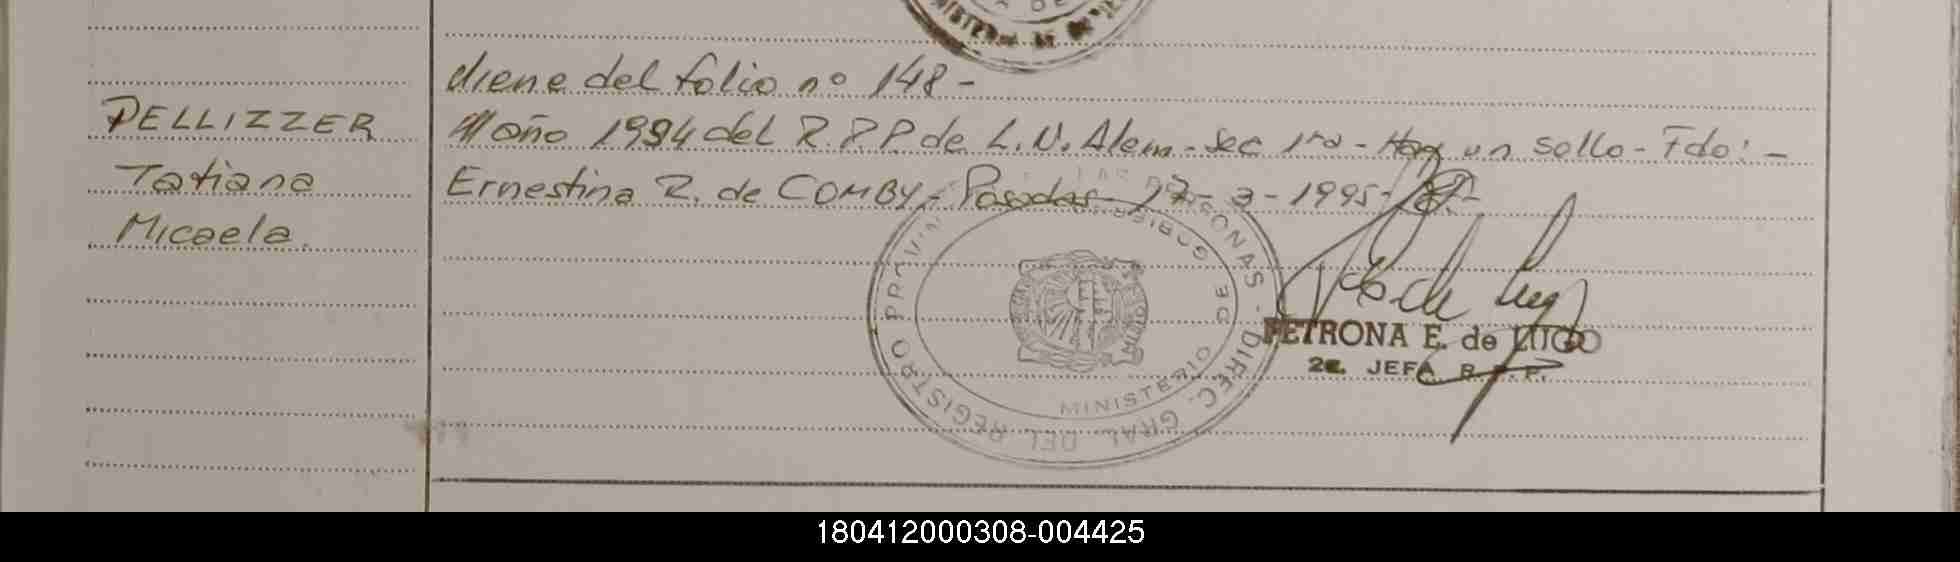 viene del folio nº 148-
PELLIZZER
Tatiana
Micaela.
año 1994 del R.P.P. de L.N. Alem - Sec 1ra - Hay un sello - Fdo: -
Ernestina R. de COMBY - Posadas 17-3-1995-
REGISTRO PROVIN PERSONAS - DIREC. GRAL. DEL
MINISTERIO DE GOBIERNO
PETRONA E. de LUGO
2a. JEFA R.P.P.
180412000308-004425